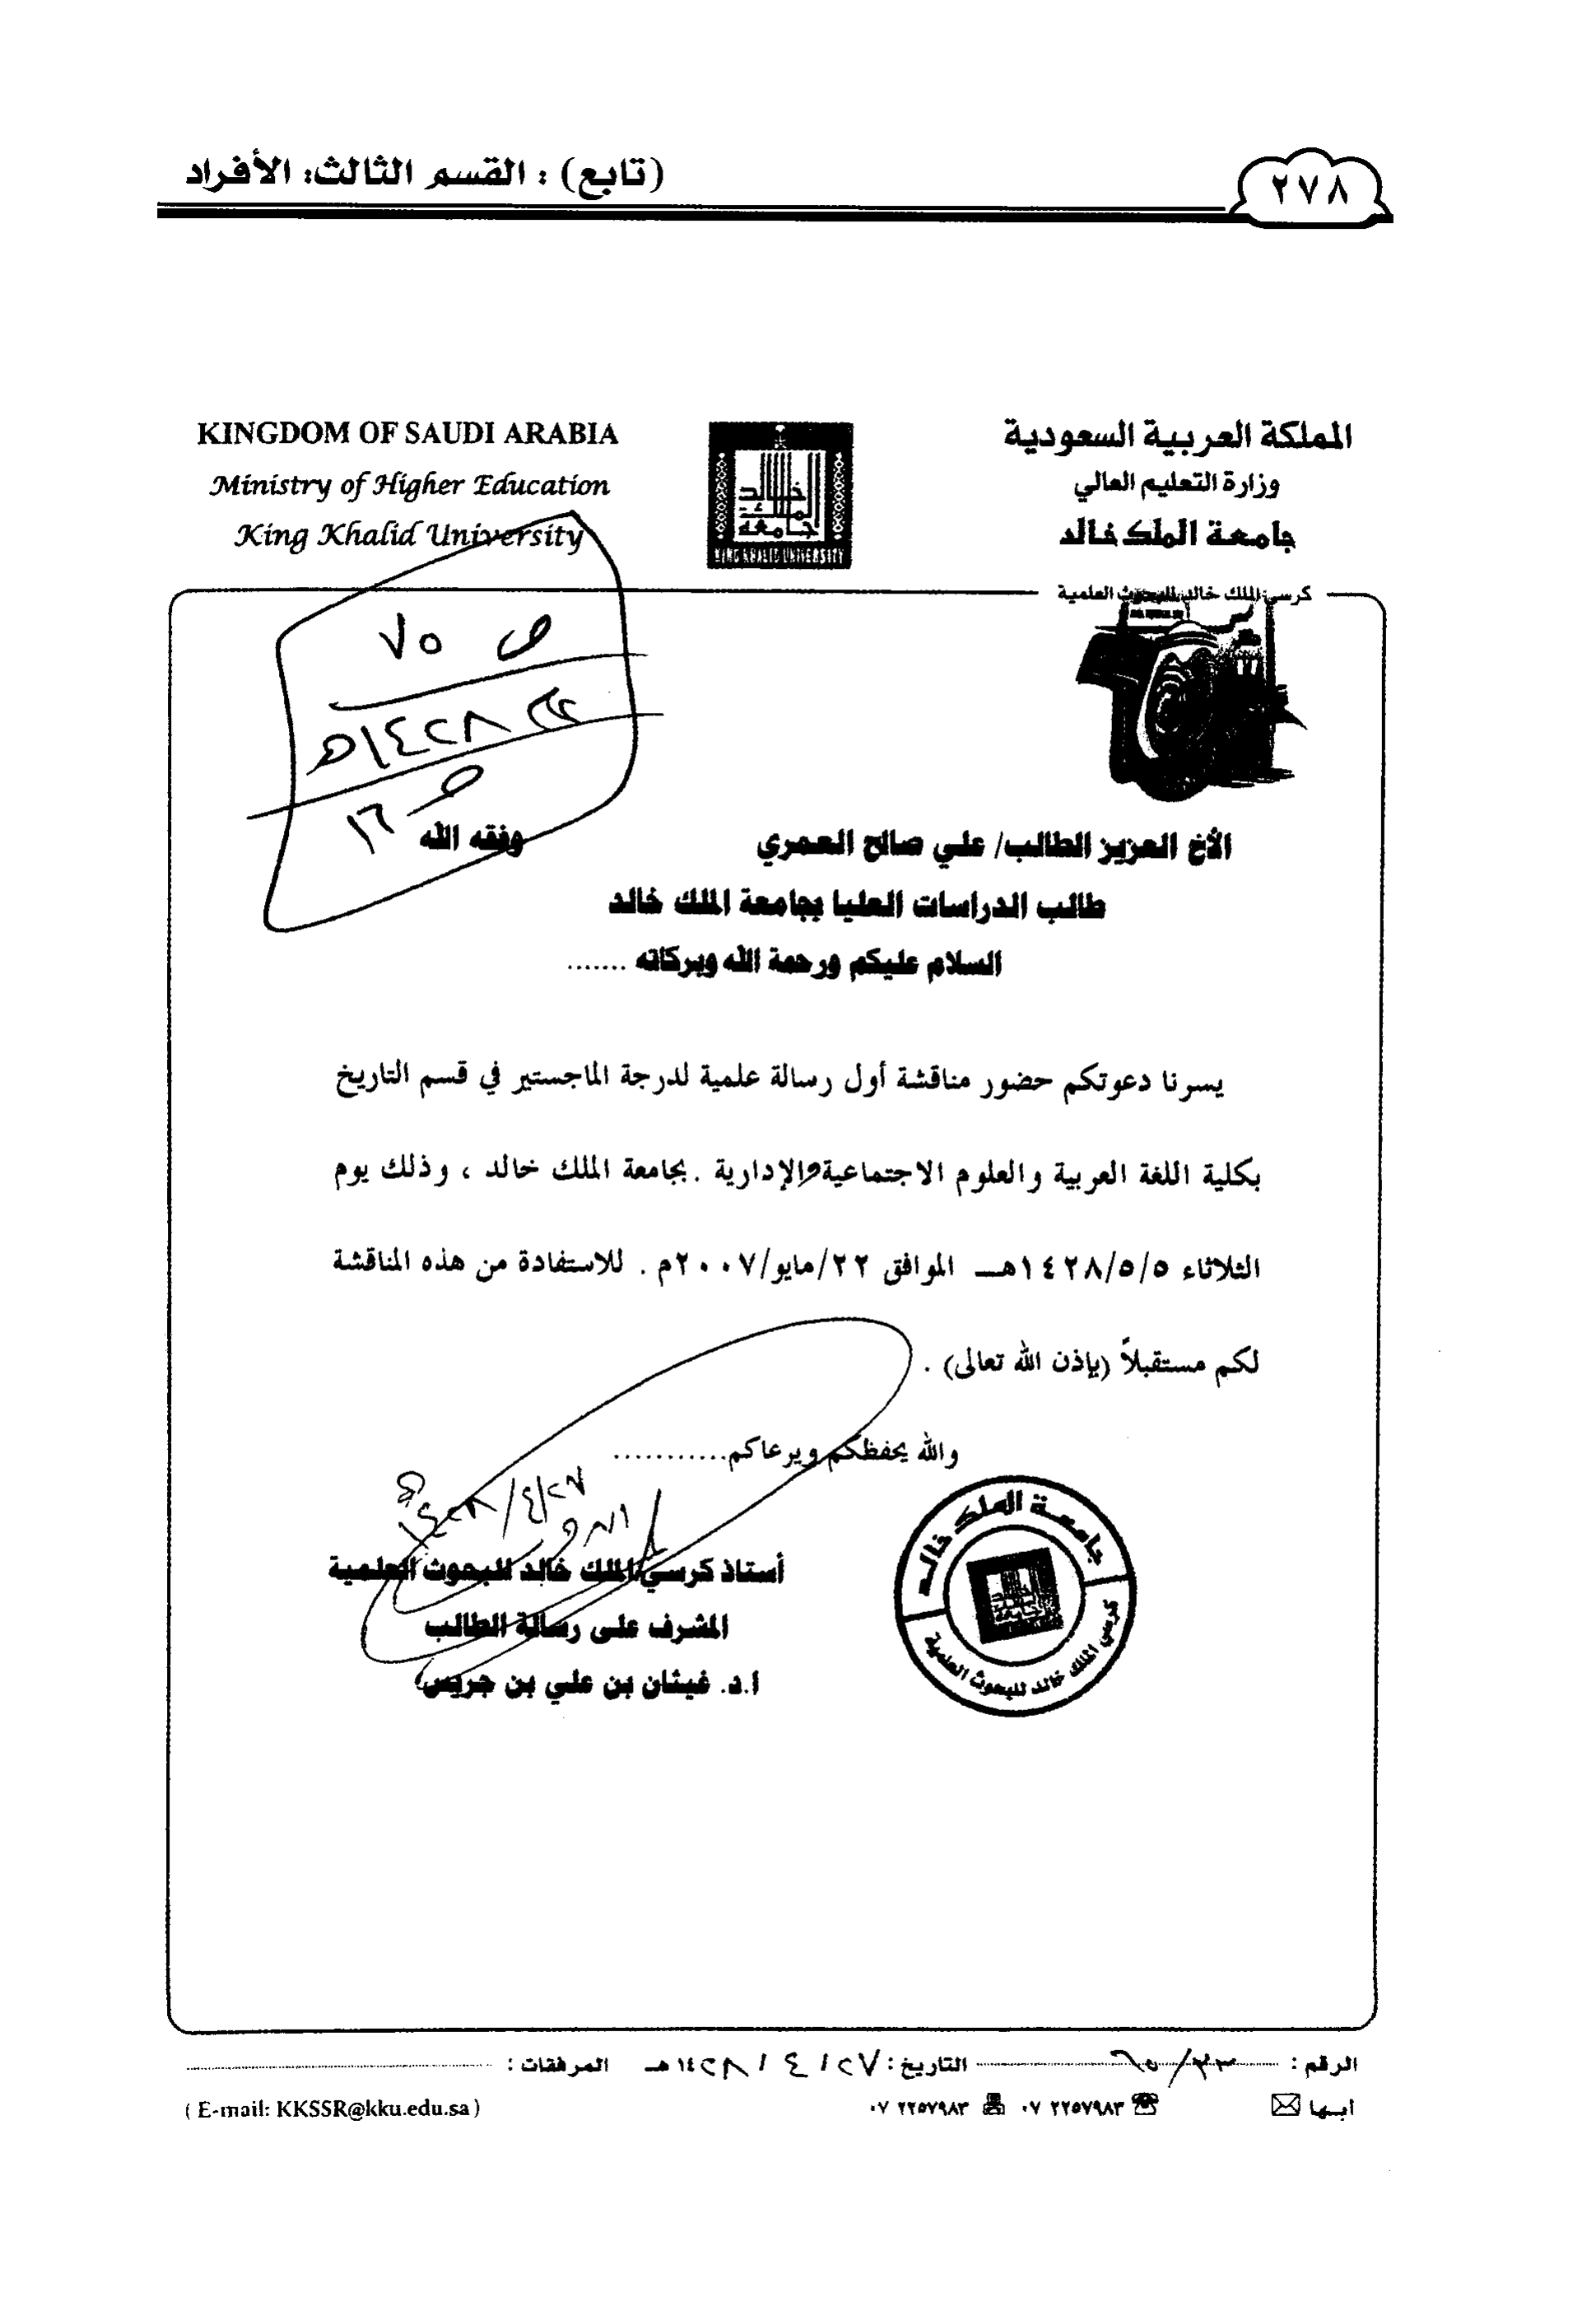 (تابع) : القسم الثالث: الأفراد
٢٧٨
المملكة العربية السعودية
وزارة التعليم العالي
جامعة الملك خالد
كرسي الملك خالد للبحوث العلمية
KINGDOM OF SAUDI ARABIA
Ministry of Higher Education
King Khalid University
جامعة الملك خالد
KING KHALID UNIVERSITY
ص ٧٥
١٤٢٨هـ
ص ١٦
الأخ العزيز الطالب/ علي صالح العمري وفقه الله
طالب الدراسات العليا بجامعة الملك خالد
السلام عليكم ورحمة الله وبركاته .......
يسرنا دعوتكم حضور مناقشة أول رسالة علمية لدرجة الماجستير في قسم التاريخ
بكلية اللغة العربية والعلوم الاجتماعية والإدارية . بجامعة الملك خالد ، وذلك يوم
الثلاثاء ١٤٢٨/٥/٥هـ الموافق ٢٢/مايو/٢٠٠٧م . للاستفادة من هذه المناقشة
لكم مستقبلاً (بإذن الله تعالى) .
والله يحفظكم ويرعاكم...........
١٤٢٨/٤/٢٧هـ
أستاذ كرسي الملك خالد للبحوث العلمية
المشرف على رسالة الطالب
أ.د. غيثان بن علي بن جريس
جامعة الملك خالد
كرسي الملك خالد للبحوث العلمية
الرقم : ٦٥/٢٣ التاريخ : ٢٧ / ٤ / ١٤٢٨ هـ المرفقات :
أبها ٠٧ ٢٢٥٧٩٨٣ ٠٧ ٢٢٥٧٩٨٣
( E-mail: KKSSR@kku.edu.sa )